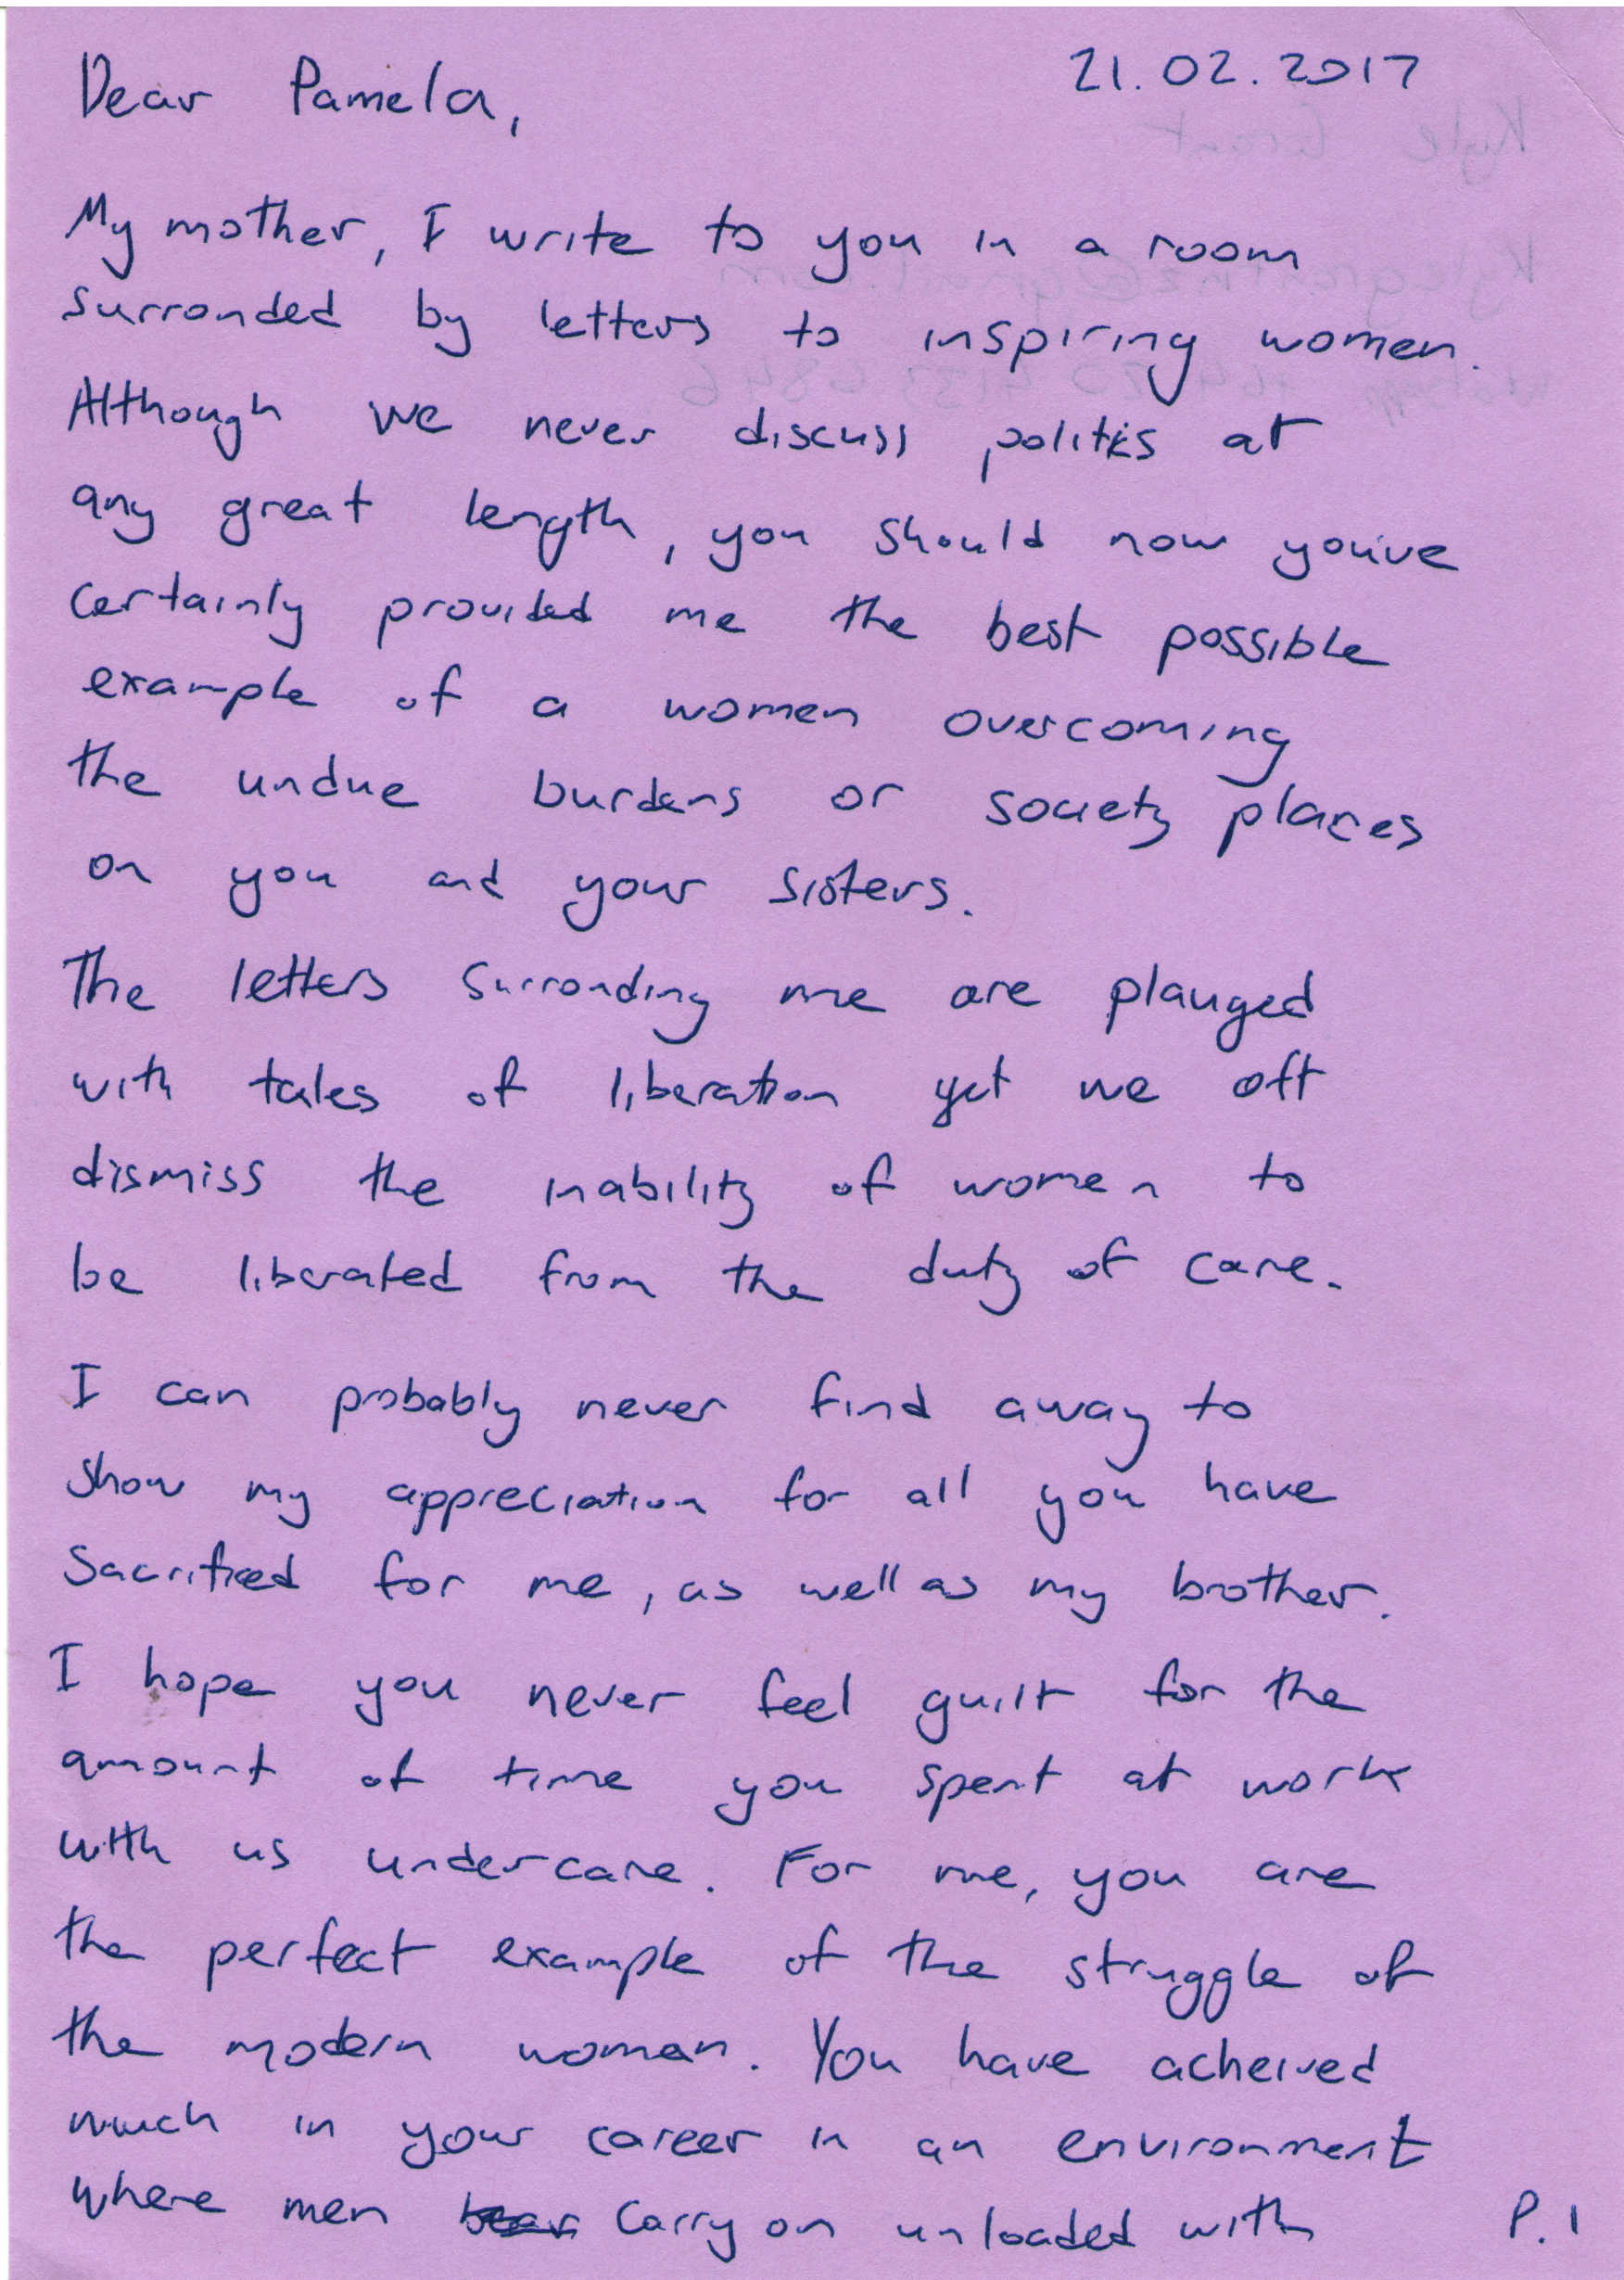 Dear Pamela,
21.02.2017
My mother, I write to you in a room
surronded by letters to inspiring women.
Although we never discuss politics at
any great length, you should now you've
certainly provided me the best possible
example of a women overcoming
the undue burdens or society places
on you and your sisters.
The letters surronding me are plauged
with tales of liberation yet we oft
dismiss the inability of women to
be liberated from the duty of care.
I can probably never find away to
show my appreciation for all you have
sacrificed for me, as well as my brother.
I hope you never feel guilt for the
amount of time you spent at work
with us undercare. For me, you are
the perfect example of the struggle of
the modern woman. You have acheived
much in your career in an environment
where men carry on unloaded with
P. 1